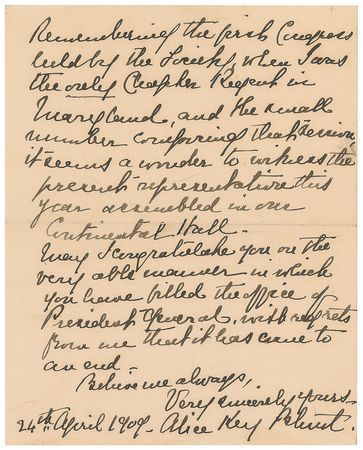 Remembering the first Congress
held by the Society, when I was
the only Chapter Regent in
Maryland, and the small
number composing that session,
it seems a wonder to witness the
present representation this
year assembled in our
Continental Hall.
May I congratulate you on the
very able manner in which
you have filled the office of
President General, with regrets
from me that it has come to
an end.
Believe me always,
Very sincerely yours
24th April 1909. Alice Key Blunt.